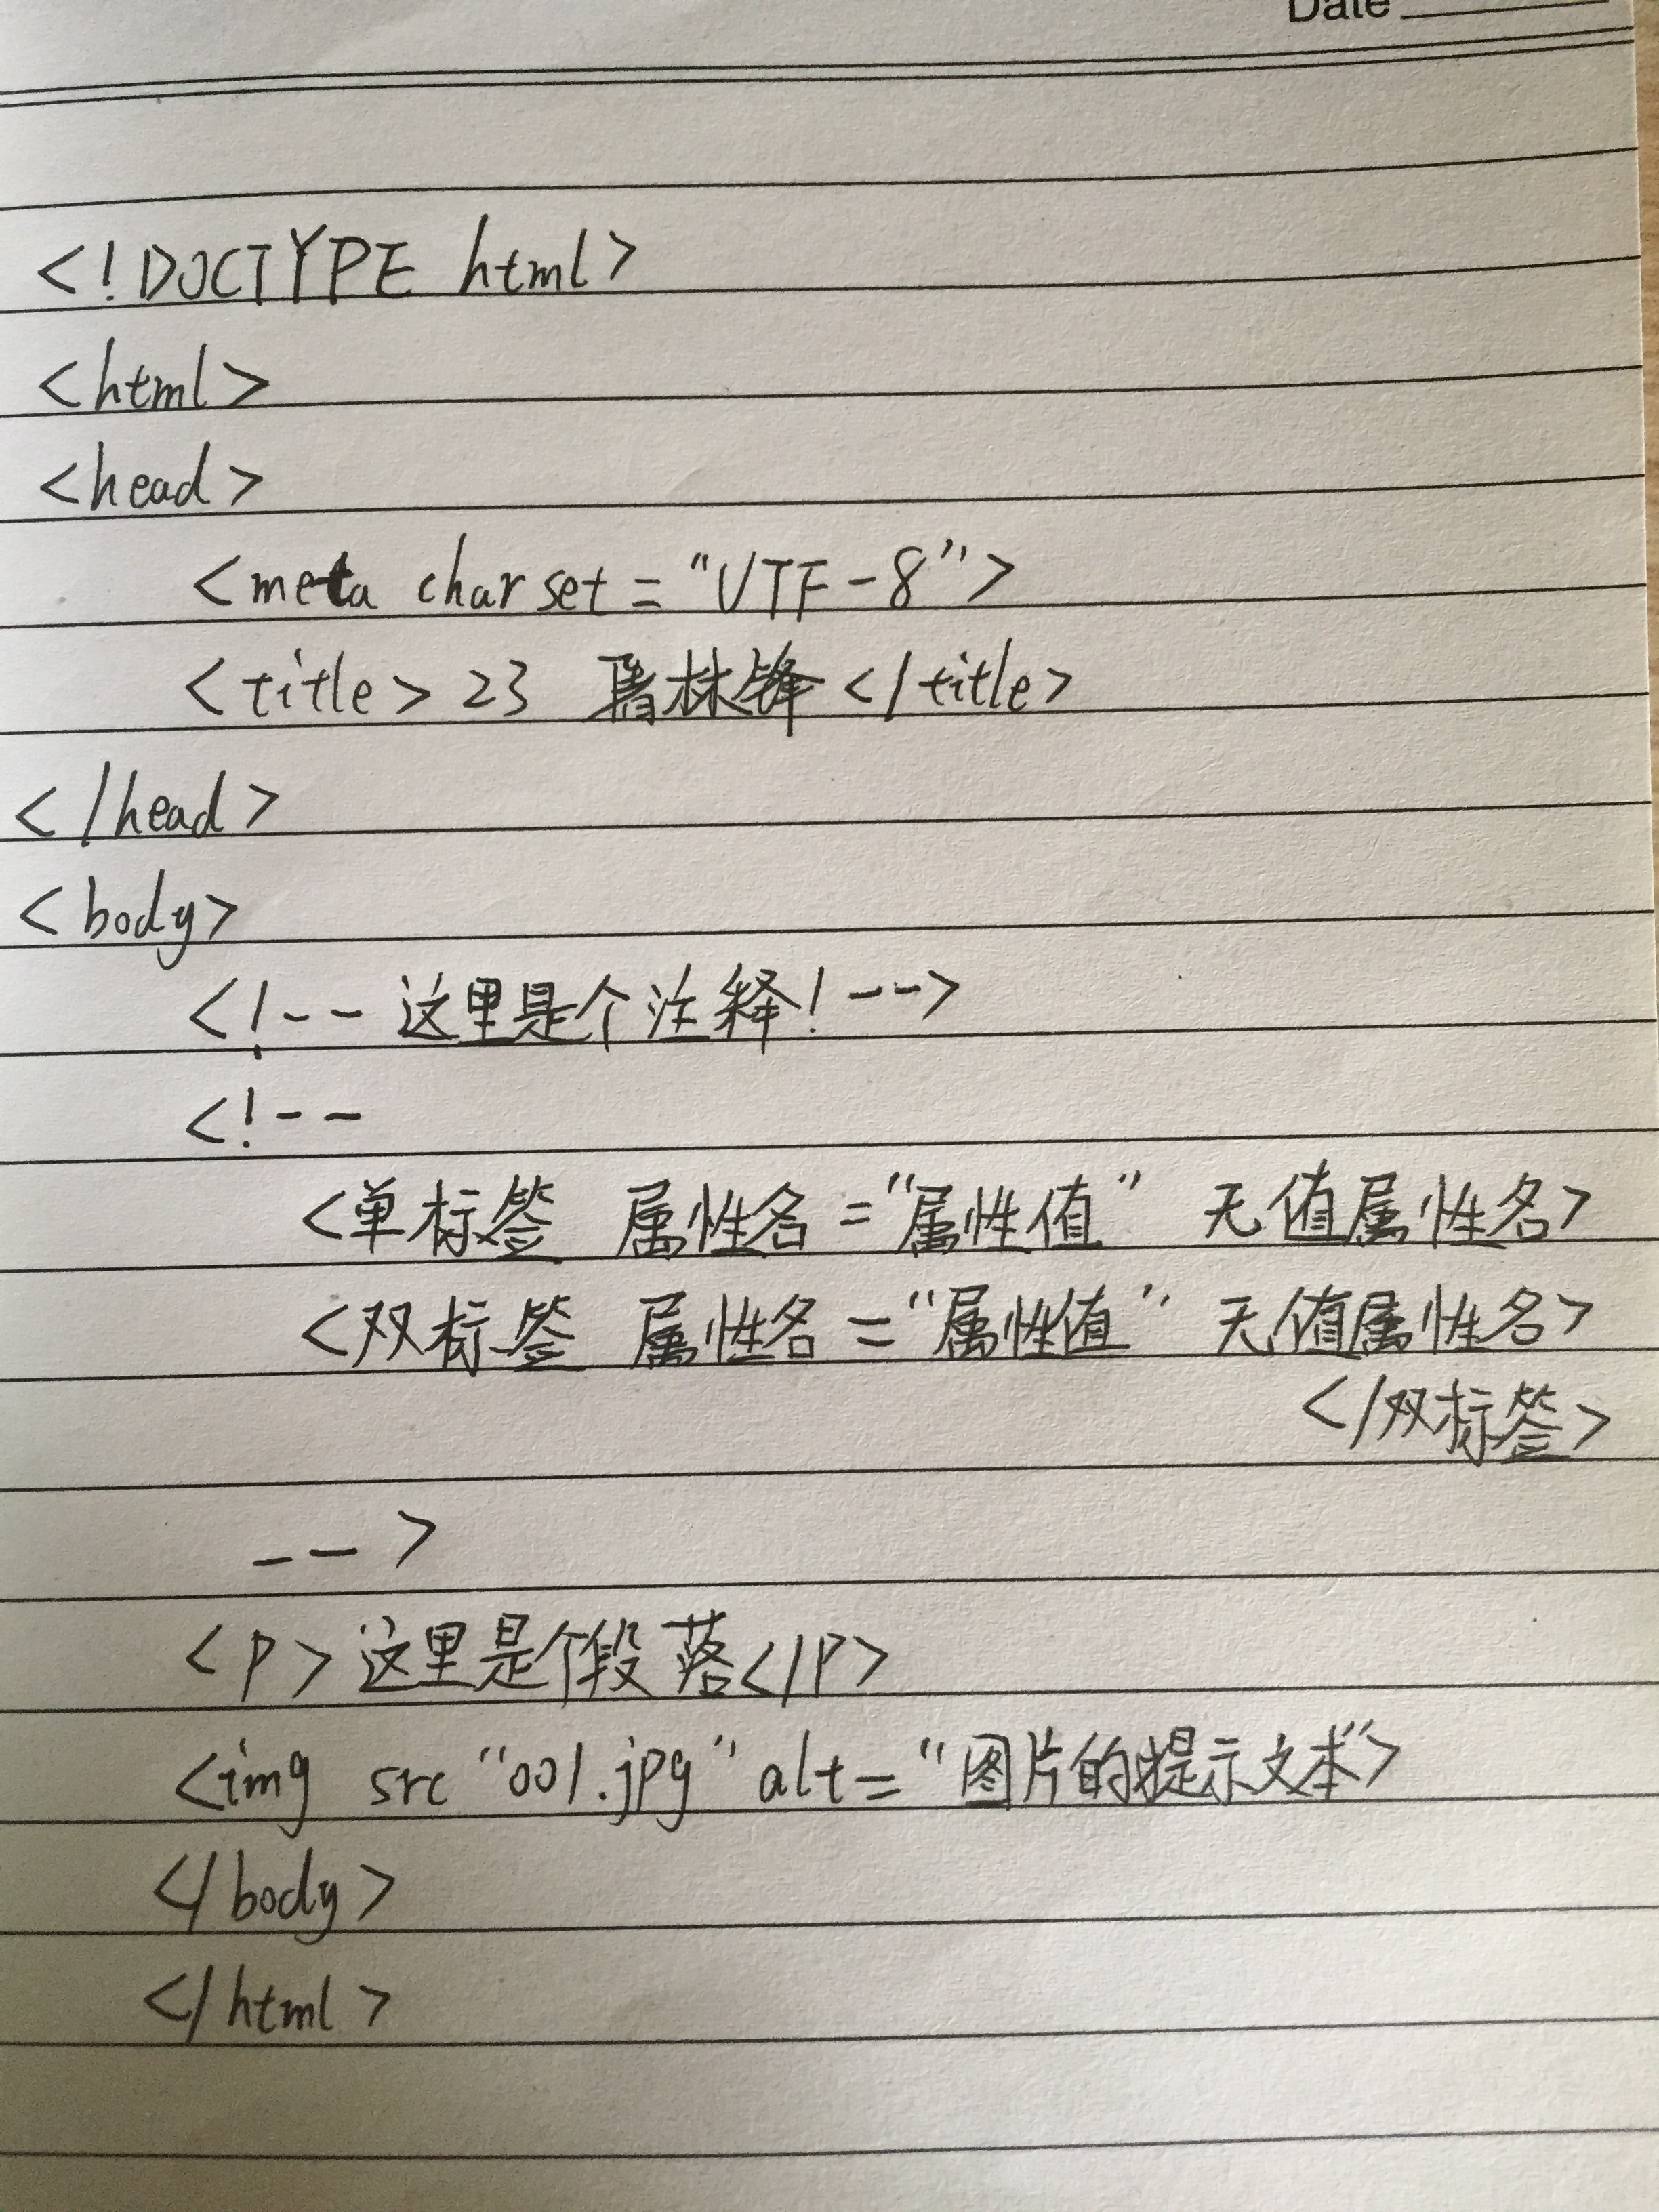 Date
<!DOCTYPE html>
<html>
<head>
<meta charset="UTF-8">
<title>23 林锋</title>
</head>
<body>
<!--这里是个注释!-->
<!--
<单标签 属性名="属性值" 无值属性名>
<双标签 属性名="属性值" 无值属性名>
</双标签>
-->
<p>这里是个段落</p>
<img src "001.jpg" alt="图片的提示文本">
</body>
</html>